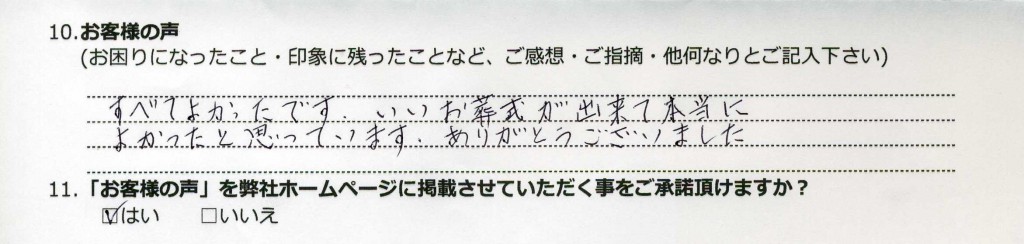 10.お客様の声
(お困りになったこと・印象に残ったことなど、ご感想・ご指摘・他何なりとご記入下さい)
すべてよかったです. いいお葬式が出来て本当に
よかったと思っています. ありがとうございました
11.「お客様の声」を弊社ホームページに掲載させていただく事をご承諾頂けますか？
☑はい □いいえ